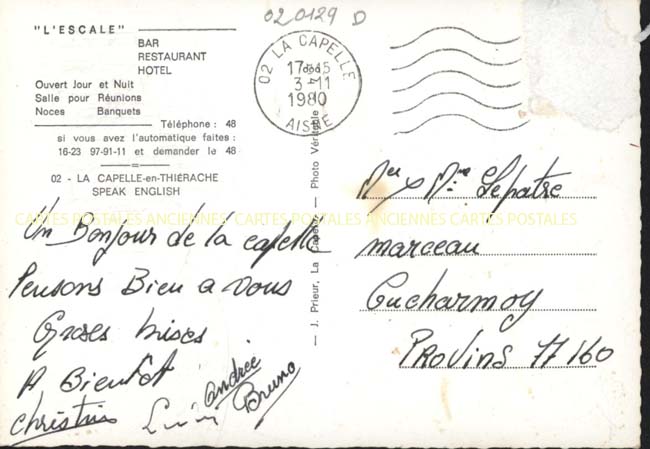 020129 D
"L'ESCALE"
BAR
RESTAURANT
HOTEL
Ouvert Jour et Nuit
Salle pour Réunions
Noces Banquets
Téléphone : 48
si vous avez l'automatique faites :
16-23 97-91-11 et demander le 48
02 - LA CAPELLE-en-THIÉRACHE
SPEAK ENGLISH
02 LA CAPELLE
17H45
3-11
1980
AISNE
J. Prieur, La Capelle. — Photo Véritable
CARTES POSTALES ANCIENNES CARTES POSTALES ANCIENNES CARTES POSTALES
Un Bonjour de la capelle
Pensons Bien a vous
Groses bises
A Bientot
christin
Andrée
Bruno
Mr & Mme Lepatre
marceau
Cucharmoy
PROVINS 77160